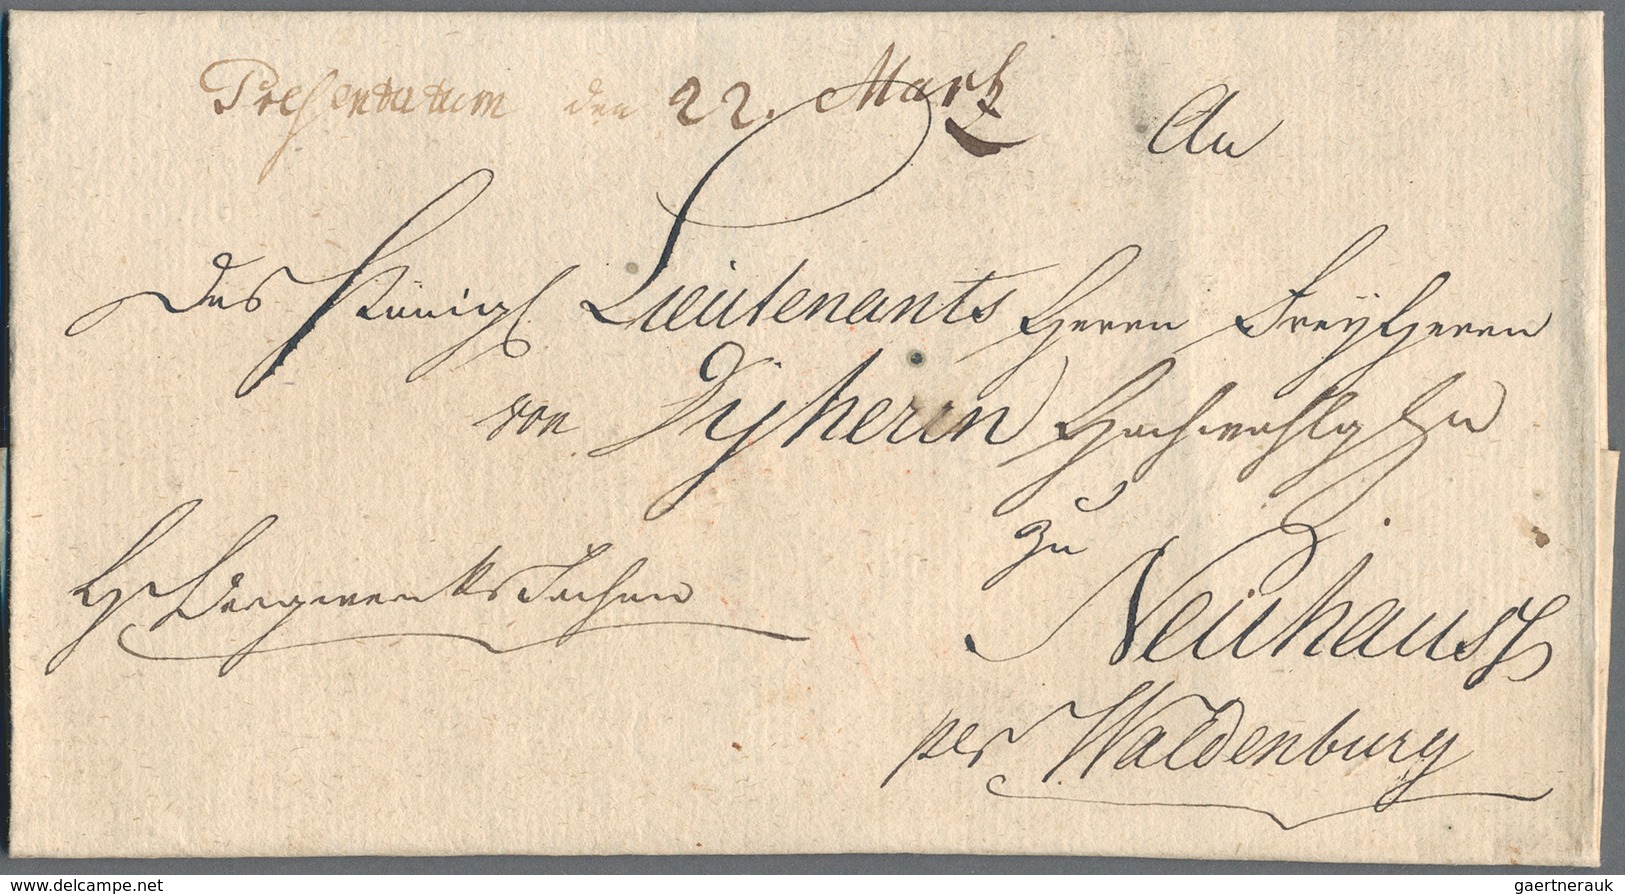 Presentatum den 22. Martz
An
Des Königl Lieutenants Herrn Freyherrn
von Dyherrn Hochwohlg
zu
Neuhauss
H Bergwerks Sachen
per Waldenburg
www.delcampe.net
gaertnerauk